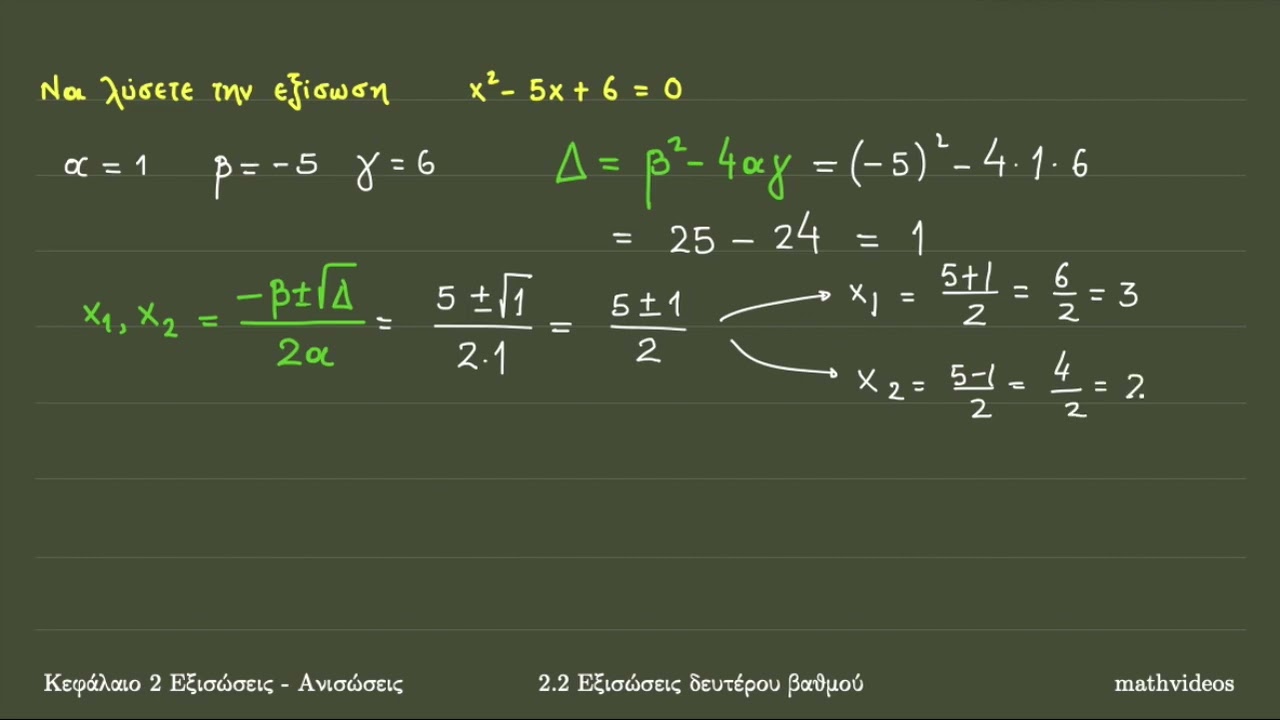 Να λύσετε την εξίσωση x² - 5x + 6 = 0
α = 1 β = -5 γ = 6 Δ = β² - 4αγ = (-5)² - 4·1·6
= 25 - 24 = 1
x₁, x₂ = (-β±√Δ)/(2α) = (5 ±√1)/(2·1) = (5 ± 1)/2
x₁ = (5+1)/2 = 6/2 = 3
x₂ = (5-1)/2 = 4/2 = 2.
Κεφάλαιο 2 Εξισώσεις - Ανισώσεις 2.2 Εξισώσεις δευτέρου βαθμού mathvideos